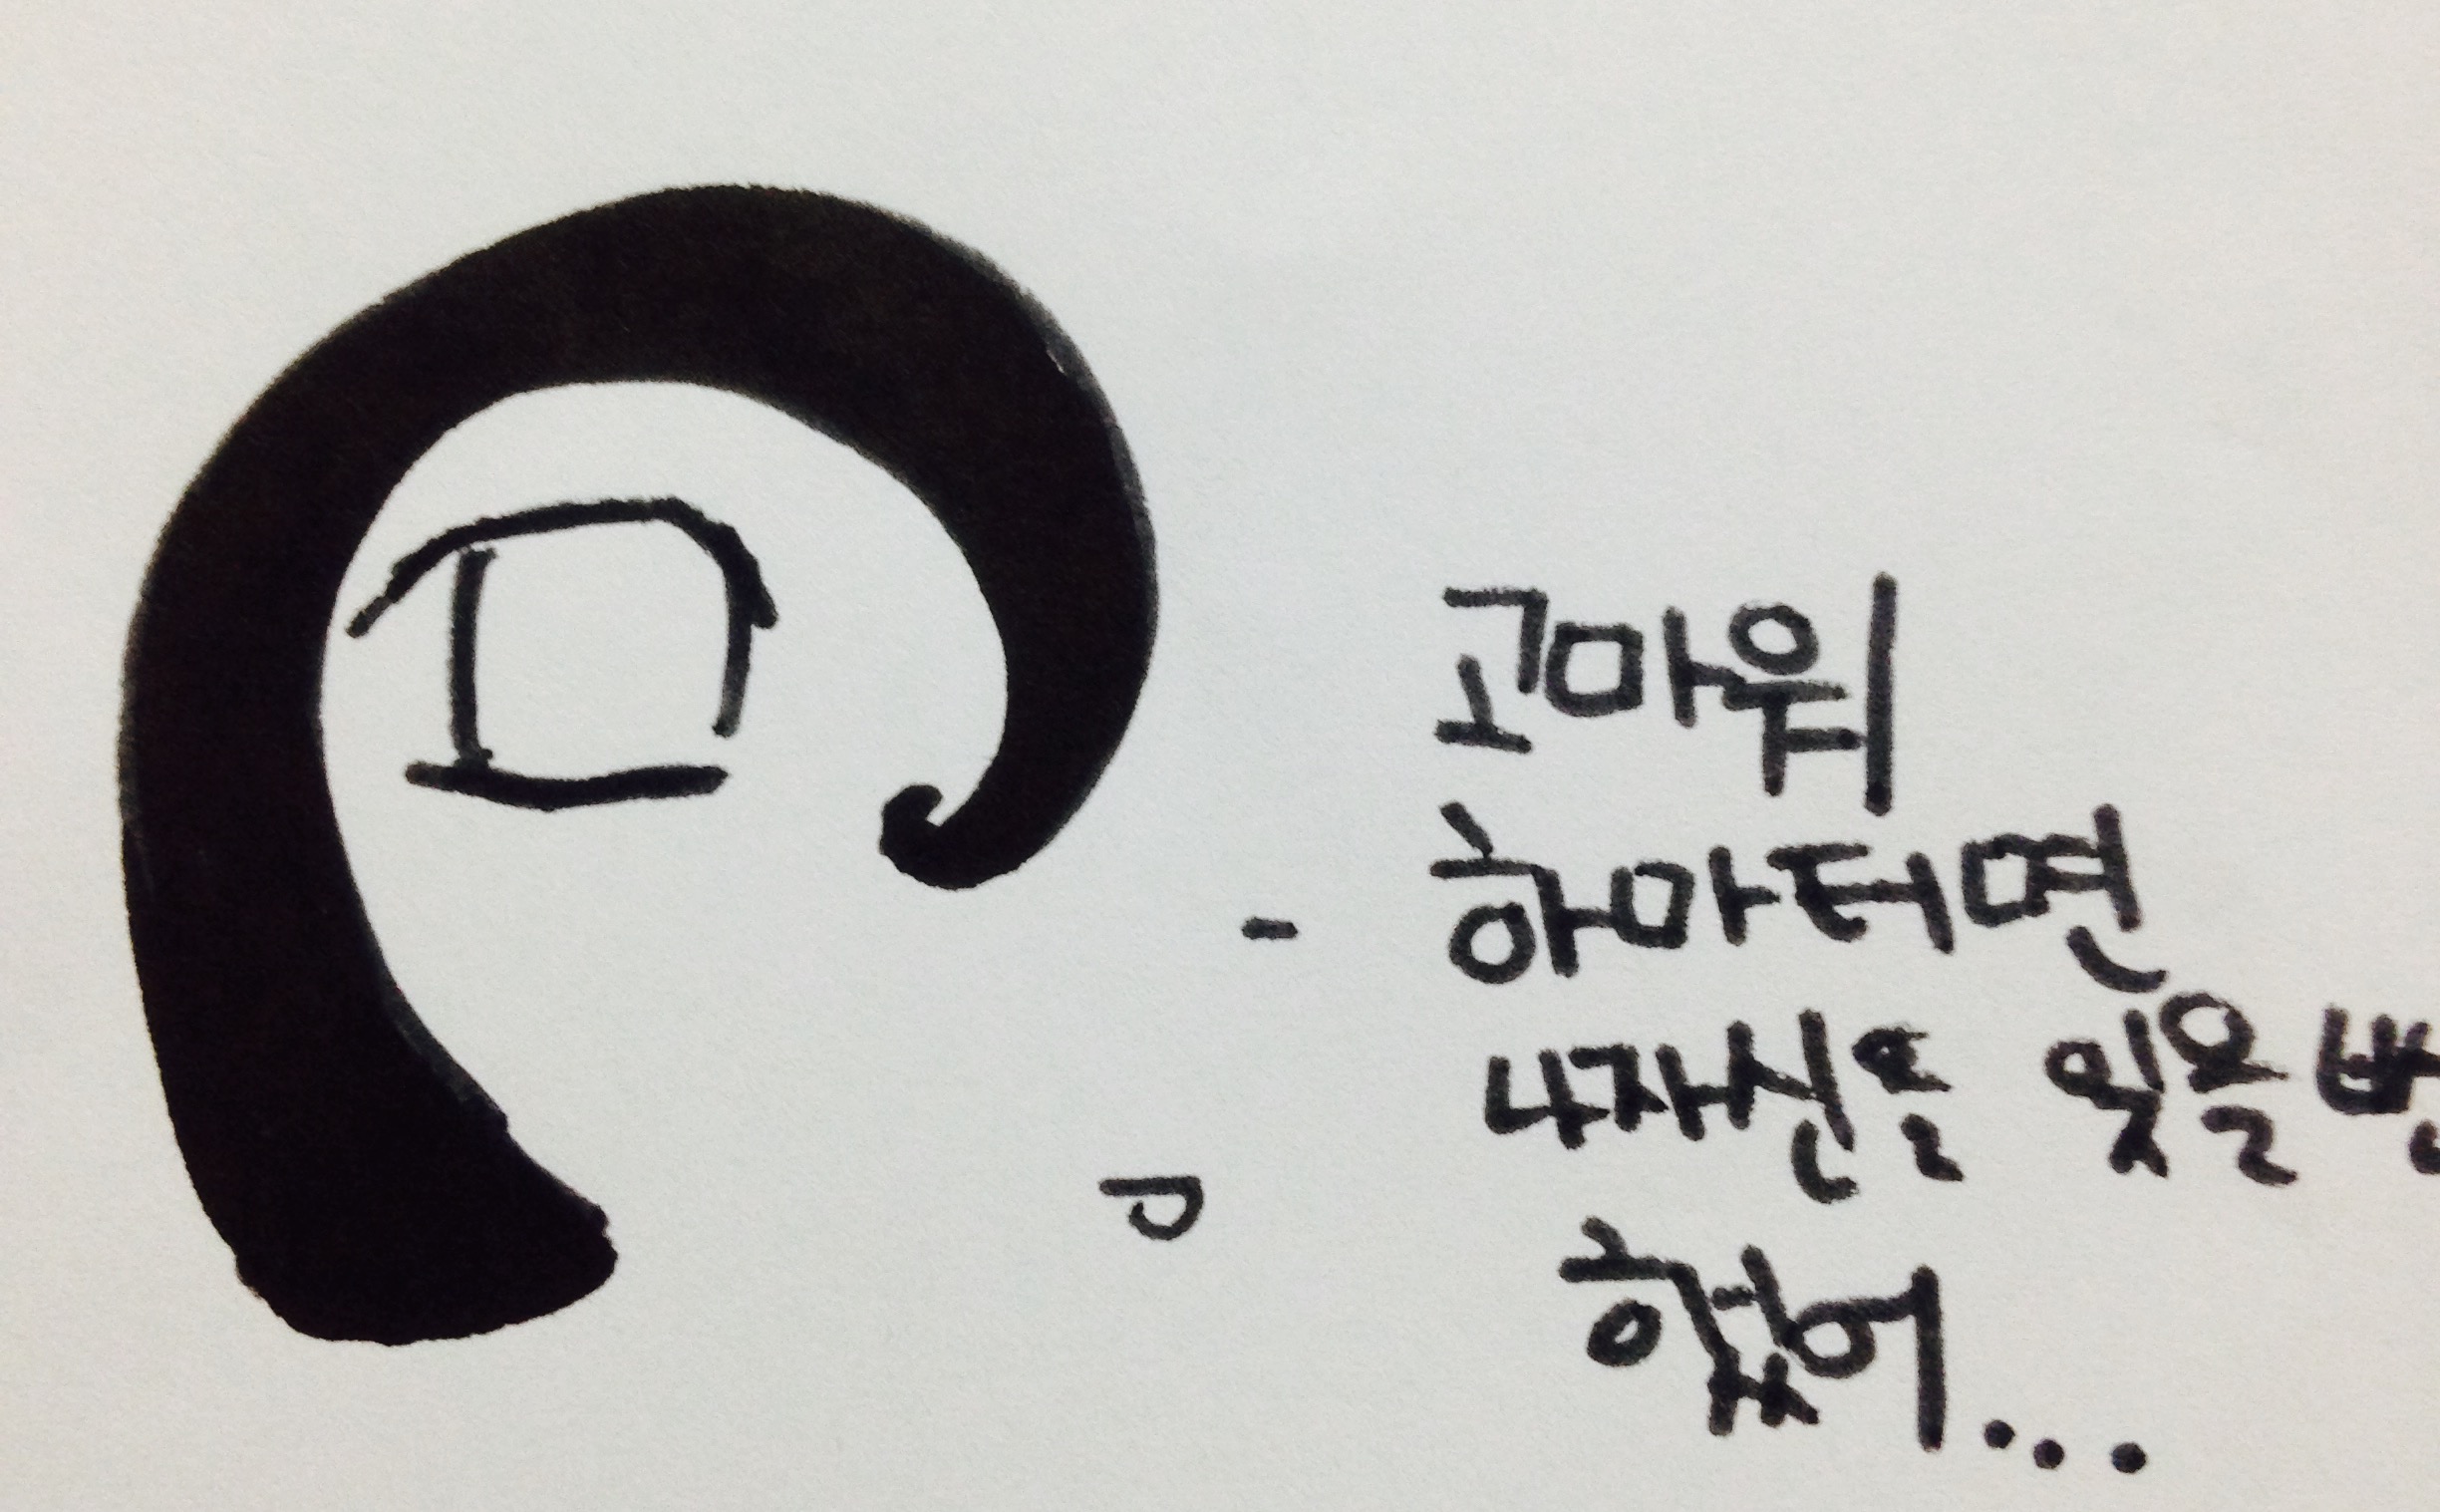 고마워
하마터면
나자신을 잊을 뻔
했어...